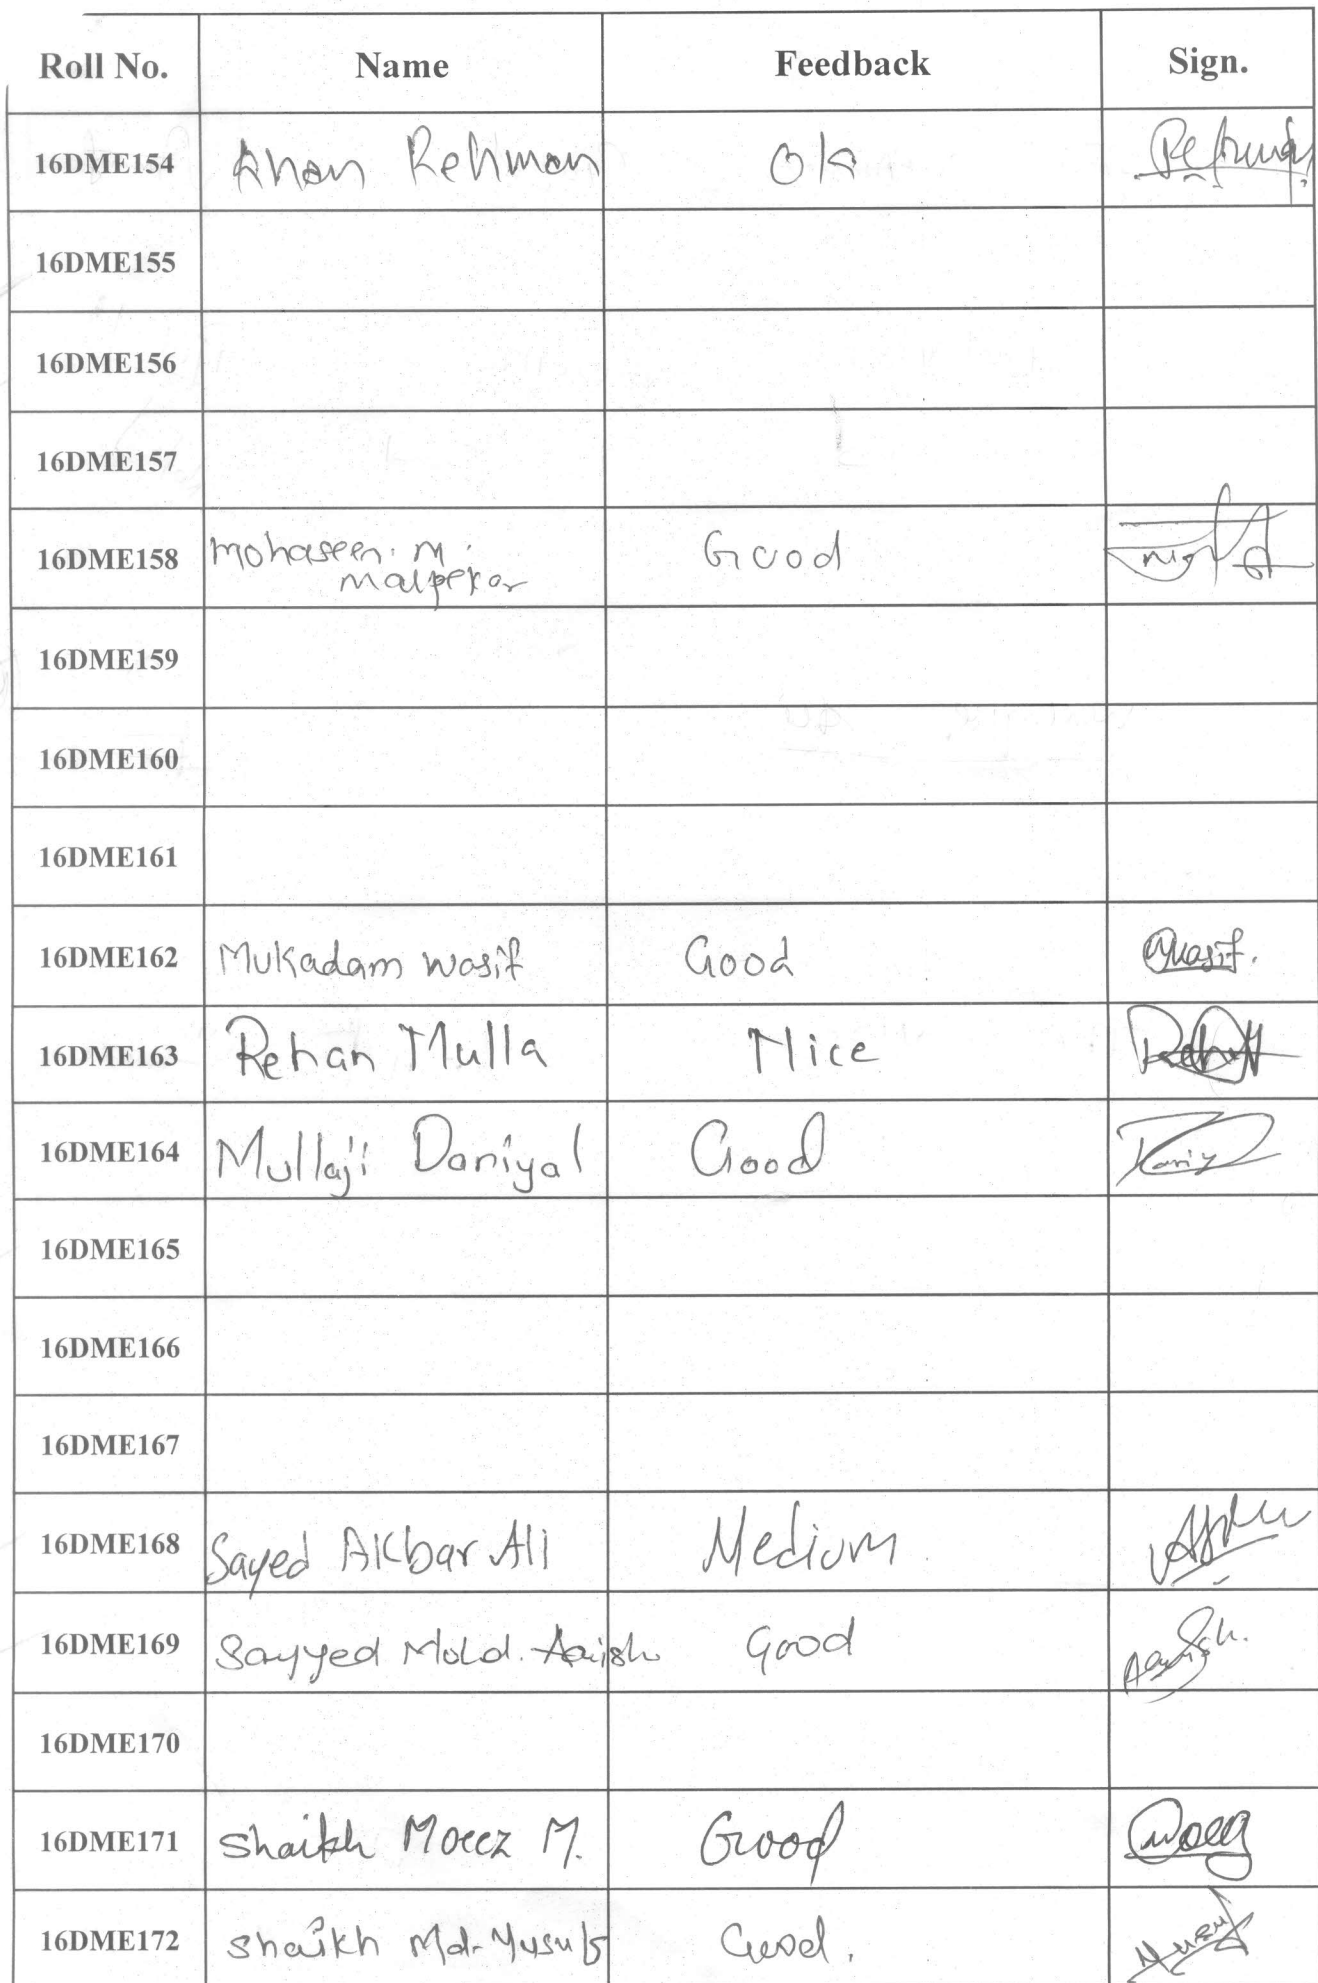 Roll No. Name Feedback Sign.
16DME154 Khan Rehman Ok
16DME155
16DME156
16DME157
16DME158 Mohaseen. M. Good
Malpekar
16DME159
16DME160
16DME161
16DME162 Mukadam Wasif Good Wasif.
16DME163 Rehan Mulla Nice
16DME164 Mullaji Daniyal Good
16DME165
16DME166
16DME167
16DME168 Sayed Akbar Ali Medium
16DME169 Sayyed Mohd. Aaish Good
16DME170
16DME171 Shaikh Moeez M. Good Moeez
16DME172 Shaikh Md. Yusuf Good.